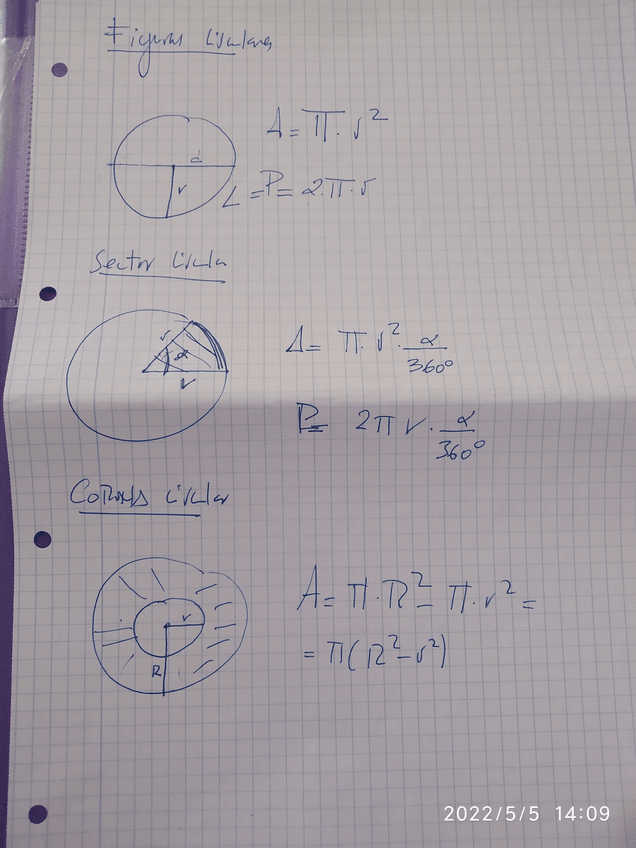 Figuras circulares
A = π · r²
d
r
L = P = 2 · π · r
Sector circular
r
α
r
A = π · r² · α/360°
P = 2 π r · α/360°
Corona circular
r
R
A = π · R² - π · r² =
= π (R² - r²)
2022/5/5 14:09